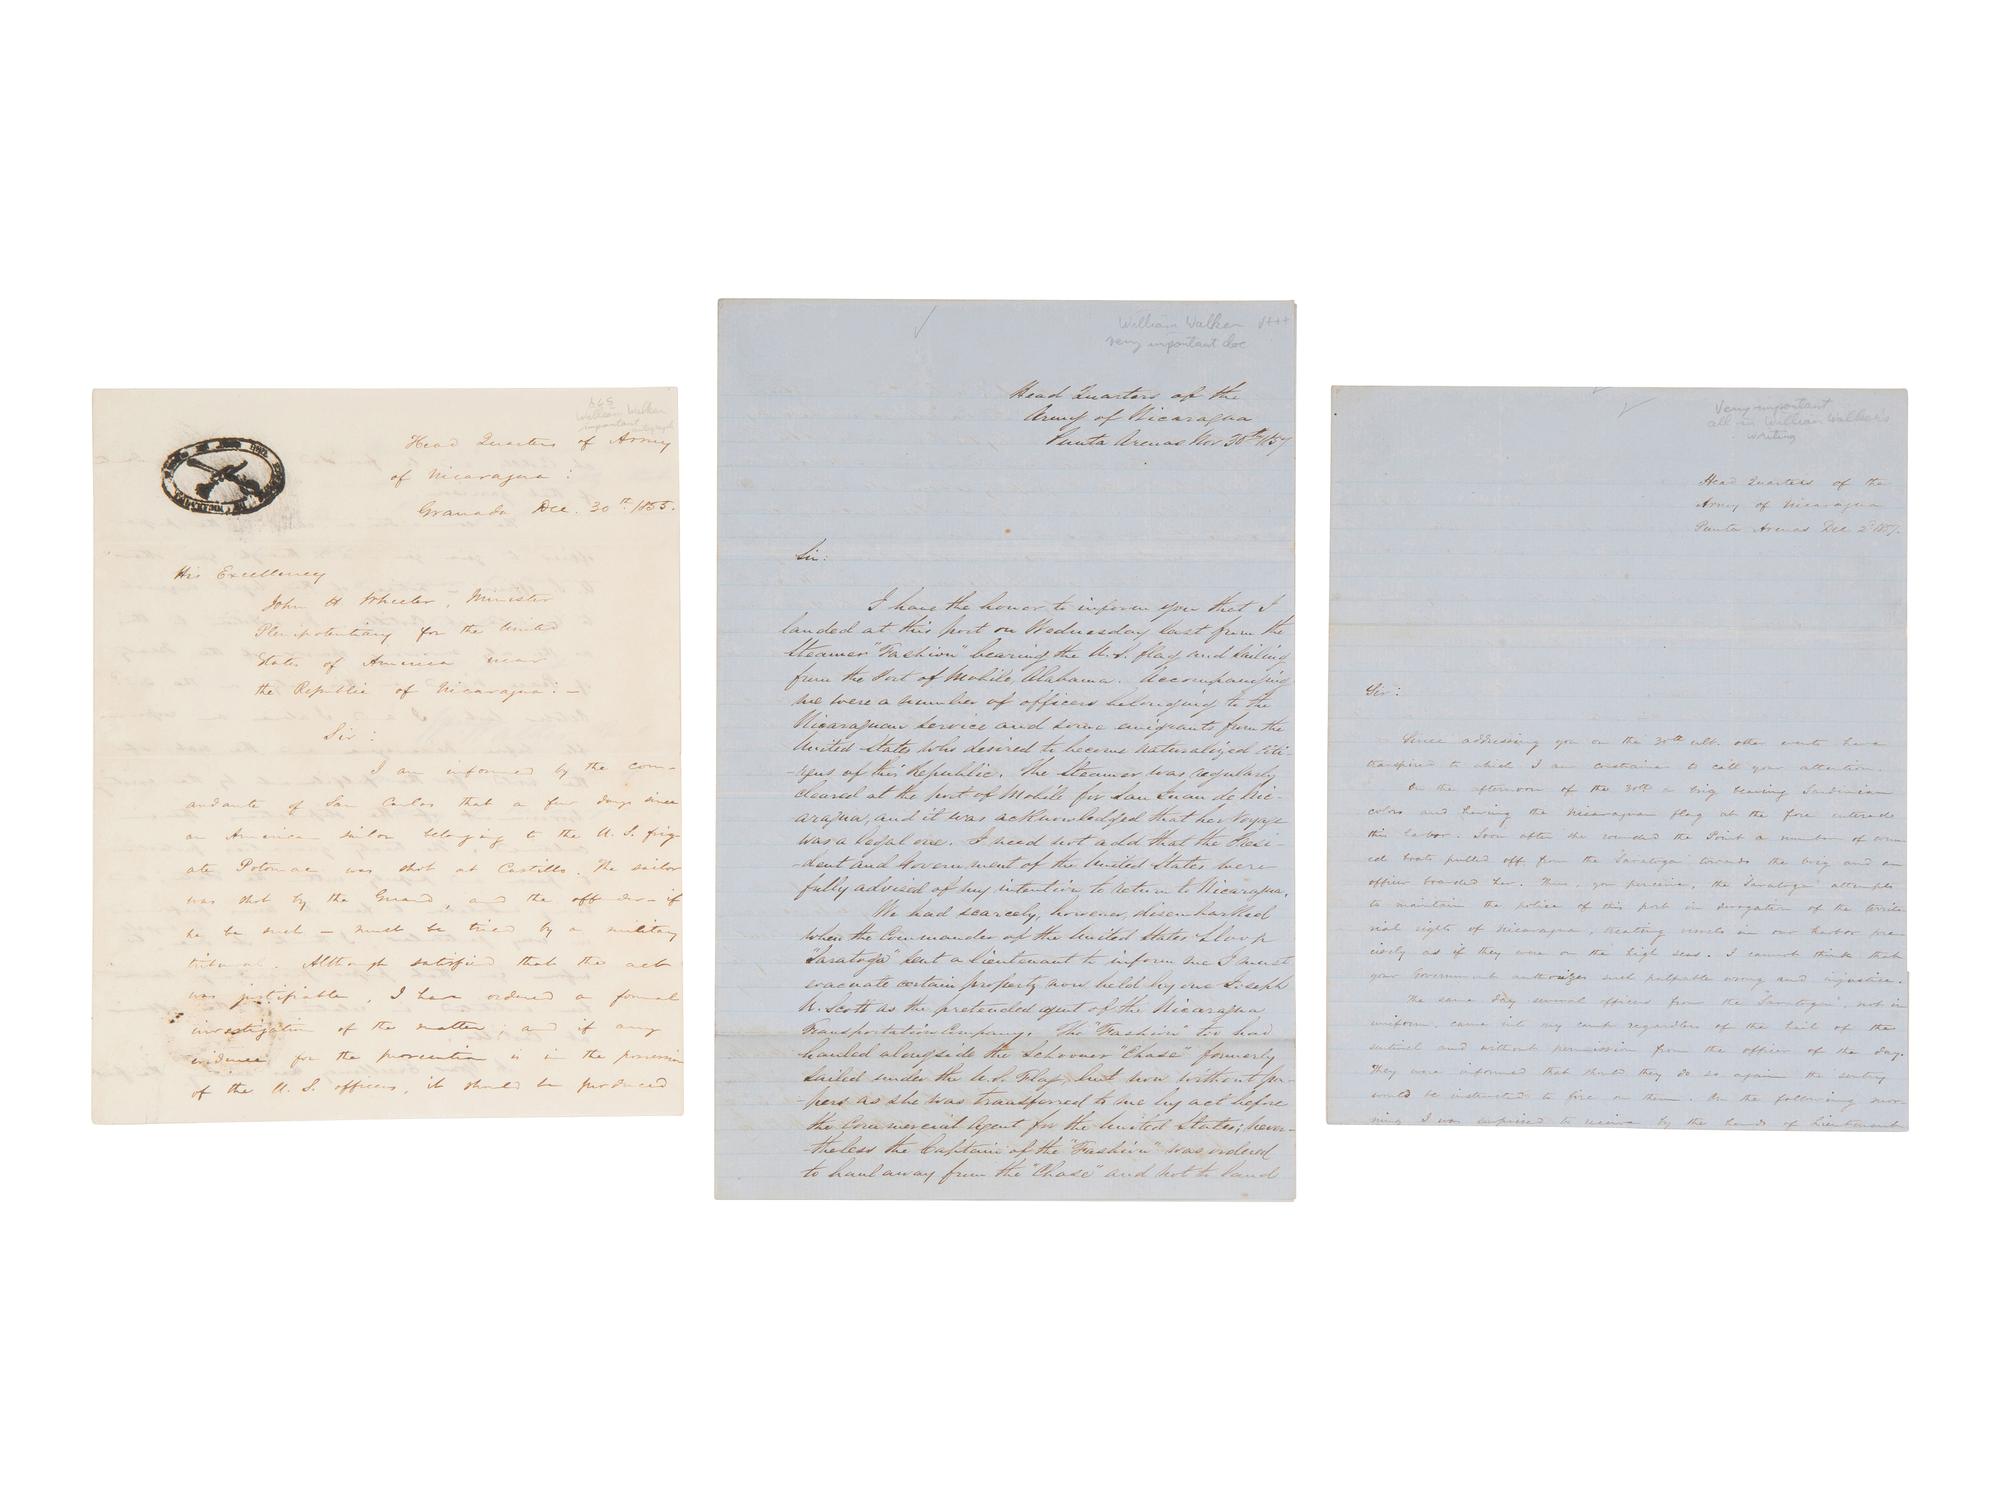 William Walker
important
autograph
Head Quarters of Army
of Nicaragua:
Granada Dec. 30th 1855.
His Excellency
John H Wheeler, Minister
Plenipotentiary for the United
States of America near
the Republic of Nicaragua:—
Sir:
I am informed by the com-
andante of San Carlos that a few days since
an American sailor belonging to the U. S. frig-
ate Potomac was shot at Castillo. The sailor
was shot by the Guard, and the offender—if
he be such—must be tried by a military
tribunal. Although satisfied that the act
was justifiable, I have ordered a formal
investigation of the matter; and if any
evidence for the prosecution is in the possession
of the U. S. officers, it should be produced
William Walker
very important doc
Head Quarters of the
Army of Nicaragua
Punta Arenas Nov 30th 1857
Sir:
I have the honor to inform you that I
landed at this port on Wednesday last from the
Steamer "Fashion" bearing the U. S. flag and sailing
from the Port of Mobile, Alabama. Accompanying
me were a number of officers belonging to the
Nicaraguan service and some emigrants from the
United States who desired to become naturalized citi-
-zens of this Republic. The Steamer was regularly
cleared at the port of Mobile for San Juan de Nic-
aragua, and it was acknowledged that her voyage
was a legal one. I need not add that the Presi-
-dent and Government of the United States were
fully advised of my intention to return to Nicaragua.
We had scarcely, however, disembarked
when the Commander of the United States Sloop
"Saratoga" sent a Lieutenant to inform me I must
evacuate certain property now held by one Joseph
N. Scott as the pretended agent of the Nicaragua
Transportation Company. The "Fashion" too had
hauled alongside the Schooner "Chase" formerly
sailed under the U.S. Flag, but now without pa-
-pers as she was transferred to me by act before
the Commercial Agent for the United States; never-
-theless the Captain of the "Fashion" was ordered
to haul away from the "Chase" and not to land
Very important
all in William Walker's
writing
Head Quarters of the
Army of Nicaragua
Punta Arenas Dec 2d 1857.
Sir:
Since addressing you on the 30th ult. other events have
transpired to which I am constrained to call your attention.
On the afternoon of the 30th a brig bearing Sardinian
colors and having the Nicaraguan flag at the fore entered
this harbor. Soon after she rounded the Point a number of arm-
ed boats pulled off from the "Saratoga" towards the brig and an
officer boarded her. Thus, you perceive, the "Saratoga" attempts
to maintain the police of this port in derogation of the territo-
rial rights of Nicaragua, treating vessels in our harbor pre-
cisely as if they were on the high seas. I cannot think that
your Government authorizes such palpable wrong and injustice.
The same day several officers from the "Saratoga", not in
uniform, came into my camp regardless of the hail of the
sentinel and without permission from the officer of the day.
They were informed that should they do so again the sentry
would be instructed to fire on them. On the following mor-
ning I was surprised to receive by the hands of Lieutenant